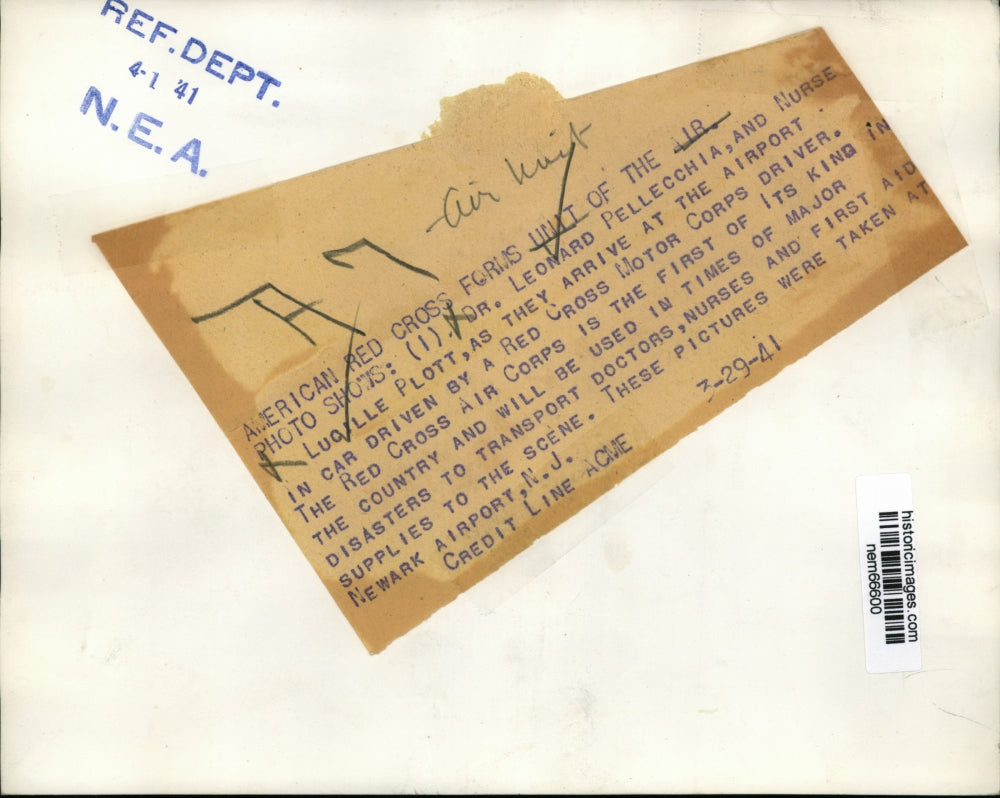 REF. DEPT.
4-1 '41
N.E.A.
Air Unit
A 7
AMERICAN RED CROSS FORMS UNIT OF THE AIR.
PHOTO SHOWS: (1). DR. LEONARD PELLECCHIA, AND NURSE
LUCILLE PLOTT, AS THEY ARRIVE AT THE AIRPORT
IN CAR DRIVEN BY A RED CROSS MOTOR CORPS DRIVER.
THE RED CROSS AIR CORPS IS THE FIRST OF ITS KIND IN
THE COUNTRY AND WILL BE USED IN TIMES OF MAJOR
DISASTERS TO TRANSPORT DOCTORS, NURSES AND FIRST AID
SUPPLIES TO THE SCENE. THESE PICTURES WERE TAKEN AT
NEWARK AIRPORT, N.J.
CREDIT LINE ACME
3-29-41
historicimages.com
nem66600